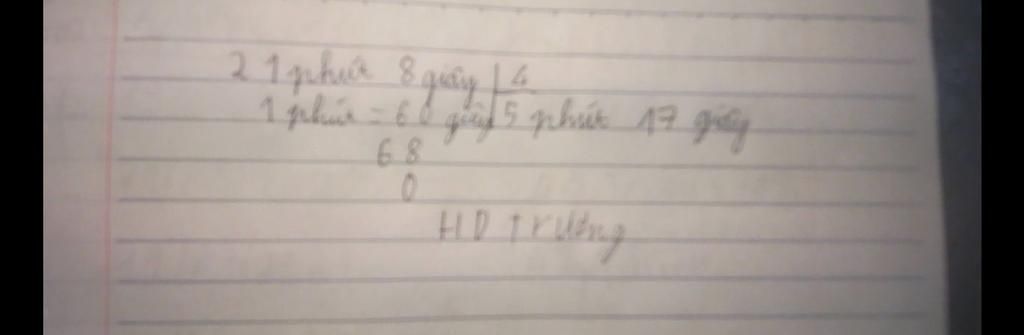 21 phút 8 giây | 4
1 phút = 60 giây | 5 phút 17 giây
68
0
HD Trường